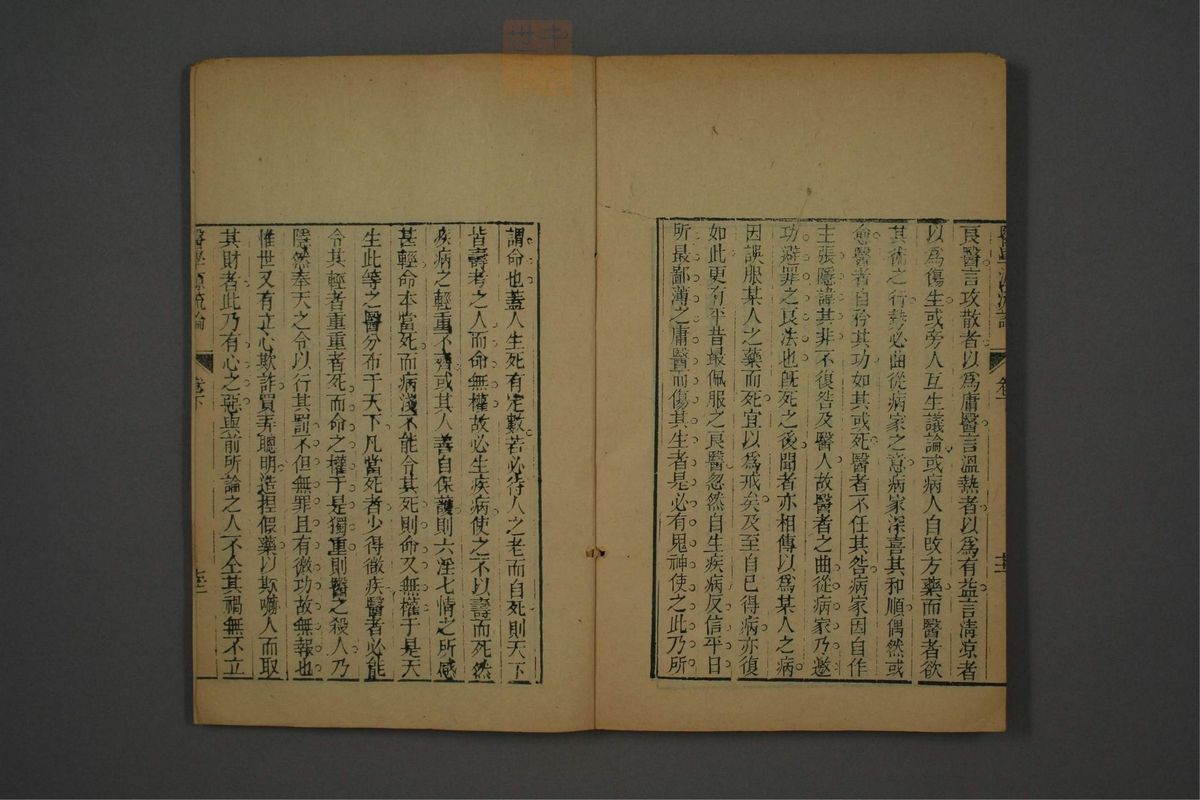 良醫言攻散者以爲庸醫言溫熱者以爲有益言淸凉者
以爲傷生或旁人互生議論或病人自改方藥而醫者欲
其術之行勢必曲從病家之意病家深喜其和順偶然或
愈醫者自矜其功如其或死醫者不任其咎病家因自作
主張隱諱其非不復咎及醫人故醫者之曲從病家乃邀
功避罪之良法也旣死之後聞者亦相傳以爲某人之病
因誤服某人之藥而死宜以爲戒矣及至自已得病亦復
如此更有平昔最佩服之良醫忽然自生疾病反信平日
所最鄙薄之庸醫而傷其生者是必有鬼神使之此乃所
謂命也葢人生死有定數若必待人之老而自死則天下
皆壽考之人而命無權故必生疾病使之不以壽而死然
疾病之輕重不齊或其人善自保護則六淫七情之所感
甚輕命本當死而病淺不能令其死則命又無權于是天
生此等之醫分布于天下凡當死者少得微疾醫者必能
令其輕者重重者死而命之權于是獨重則醫之殺人乃
隱然奉天之令以行其罰不但無罪且有微功故無報也
惟世又有立心欺詐買弄聰明造捏假藥以欺嚇人而取
其財者此乃有心之惡與前所論之人不仝其禍無不立
醫學源流論 卷下